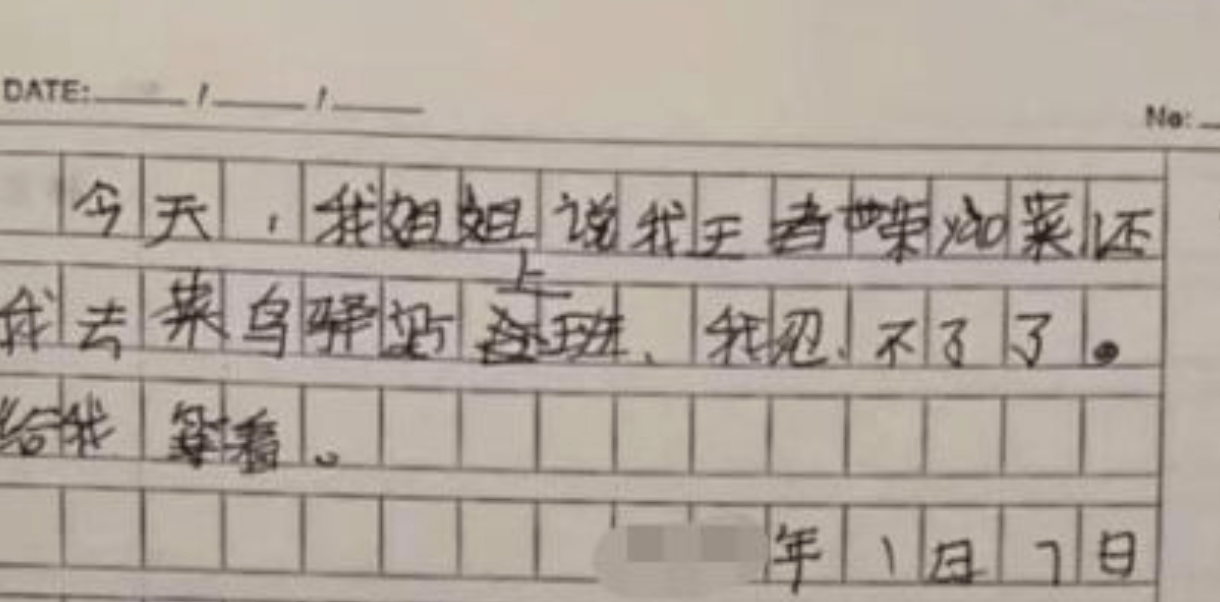 DATE: / /
No:
今天,我姐姐说我王者荣菜还
我去菜鸟驿站上班、我忍不了了。
给我等着。
年1日7日